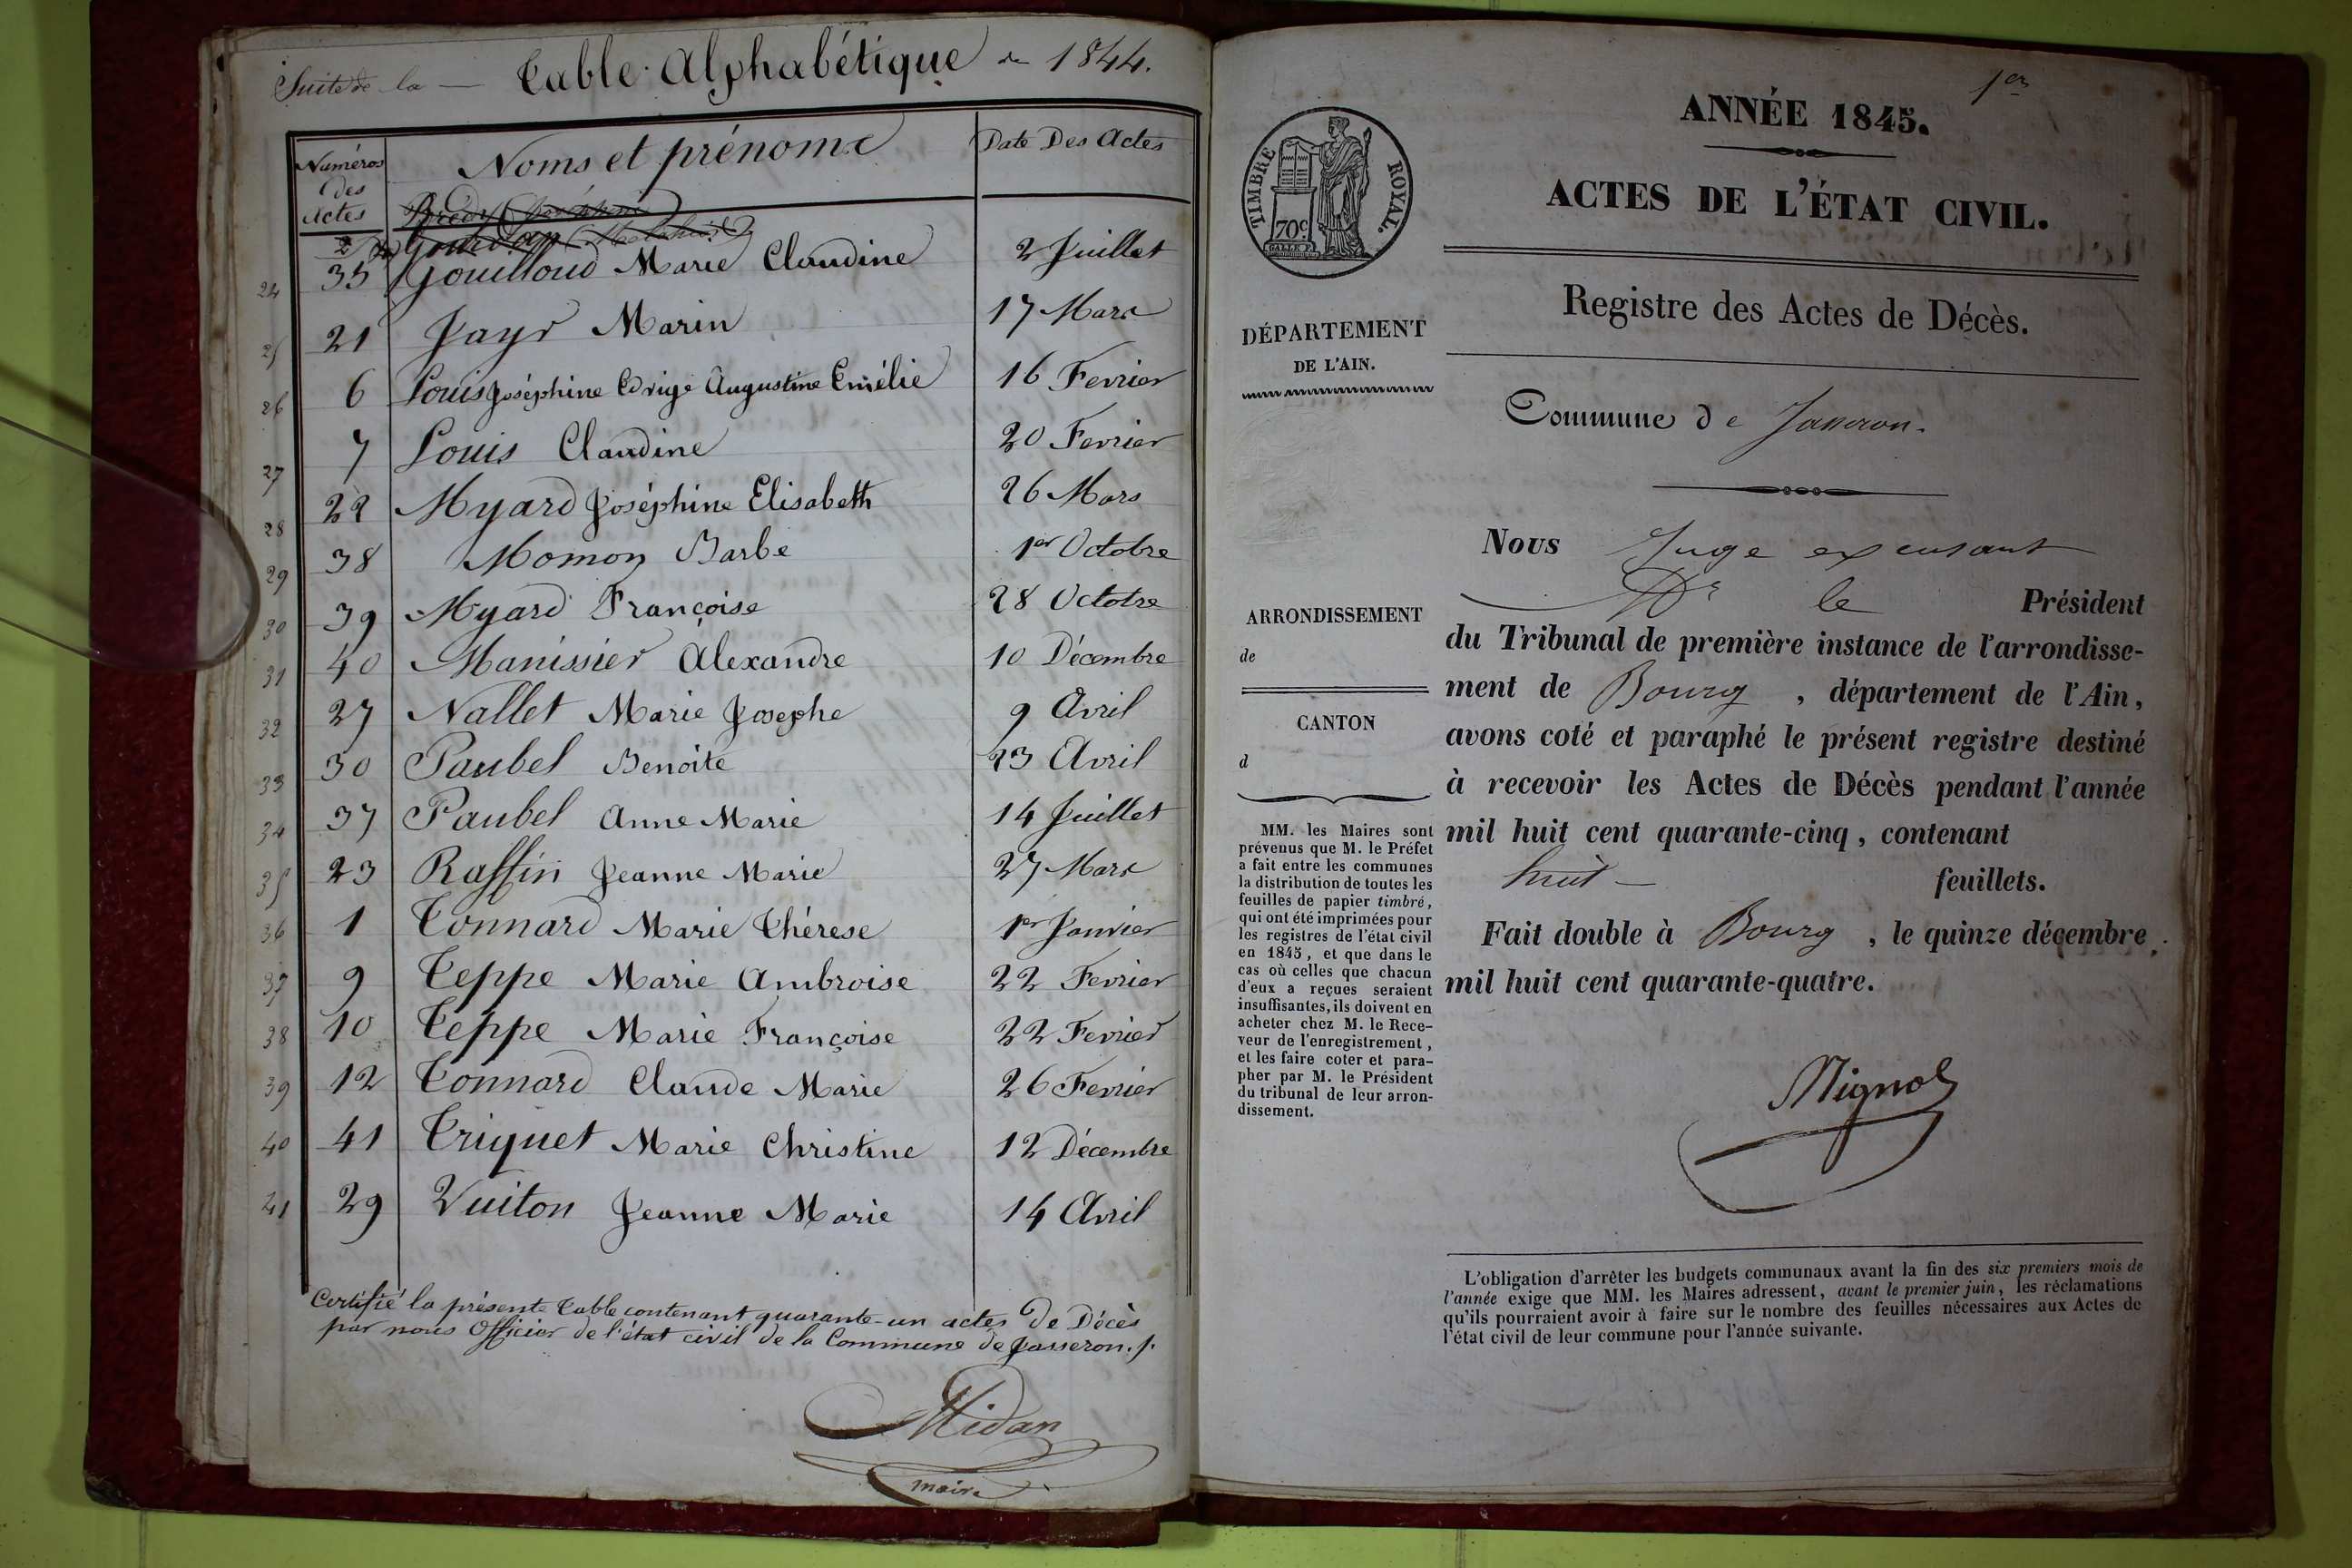 Suite de la — Table Alphabétique de 1844.
Numéros des Actes
Noms et prénoms
Date Des Actes
24 35 Gouilloud Marie Claudine 2 Juillet
25 21 Jayr Marin 17 Mars
26 6 Louis Joséphine Edvige Augustine Emélie 16 Fevrier
27 7 Louis Claudine 20 Fevrier
28 22 Myard Joséphine Elisabeth 26 Mars
29 38 Momon Barbe 1er Octobre
30 39 Myard Françoise 28 Octobre
31 40 Manissier Alexandre 10 Décembre
32 27 Nallet Marie Josephe 9 Avril
33 30 Paubel Benoite 23 Avril
34 37 Paubel Anne Marie 14 Juillet
35 23 Raffin Jeanne Marie 27 Mars
36 1 Tonnard Marie Thérese 1er Janvier
37 9 Teppe Marie Ambroise 22 Fevrier
38 10 Teppe Marie Françoise 22 Fevrier
39 12 Tonnard Claude Marie 26 Fevrier
40 41 Triquet Marie Christine 12 Décembre
41 29 Vuiton Jeanne Marie 14 Avril
Certifié la présente Table contenant quarante-un actes De Décès
par nous Officier de l'état civil de la Commune de Jasseron.
Midan
maire
1er
ANNÉE 1845.
ACTES DE L'ÉTAT CIVIL.
TIMBRE ROYAL.
70c.
Registre des Actes de Décès.
DÉPARTEMENT
DE L'AIN.
Commune de Jasseron.
Nous Juge
le Président
du Tribunal de première instance de l'arrondisse-
ment de Bourg , département de l'Ain,
avons coté et paraphé le présent registre destiné
à recevoir les Actes de Décès pendant l'année
mil huit cent quarante-cinq , contenant
huit — feuillets.
Fait double à Bourg , le quinze décembre
mil huit cent quarante-quatre.
Mignot
ARRONDISSEMENT
de
CANTON
d
MM. les Maires sont
prévenus que M. le Préfet
a fait entre les communes
la distribution de toutes les
feuilles de papier timbré,
qui ont été imprimées pour
les registres de l'état civil
en 1845, et que dans le
cas où celles que chacun
d'eux a reçues seraient
insuffisantes, ils doivent en
acheter chez M. le Rece-
veur de l'enregistrement,
et les faire coter et para-
pher par M. le Président
du tribunal de leur arron-
dissement.
L'obligation d'arrêter les budgets communaux avant la fin des six premiers mois de
l'année exige que MM. les Maires adressent, avant le premier juin, les réclamations
qu'ils pourraient avoir à faire sur le nombre des feuilles nécessaires aux Actes de
l'état civil de leur commune pour l'année suivante.